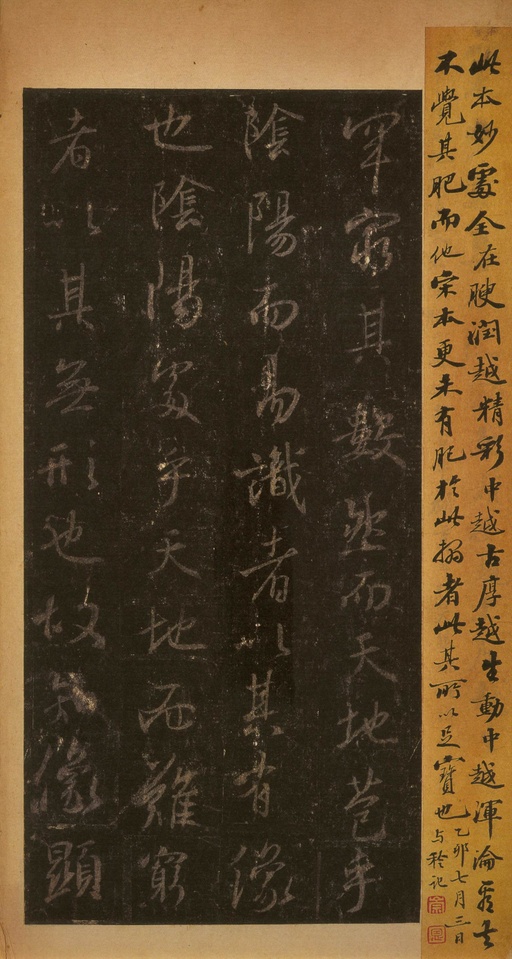 此本妙處全在腴潤越精彩中越古厚越生動中越渾淪看去
不覺其肥而他宋本更未有肥於此搨者此其所以足寶也
乙卯七月三日
与舲記
罕窮其數然而天地苞乎
陰陽而易識者以其有像
也陰陽處乎天地而難窮
者以其無形也故知像顯